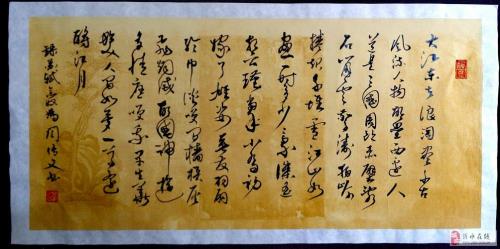 大江东去浪淘尽千古
风流人物故壘西边人
道是三國周郎赤壁乱
石穿空惊涛拍岸
捲起千堆雪江山如
画一时多少豪杰遥
想公瑾當年小乔初
嫁了雄姿英发羽扇
纶巾谈笑间樯橹灰
飞烟滅故國神遊
多情应笑我早生華
髮人间如梦一尊还
酹江月